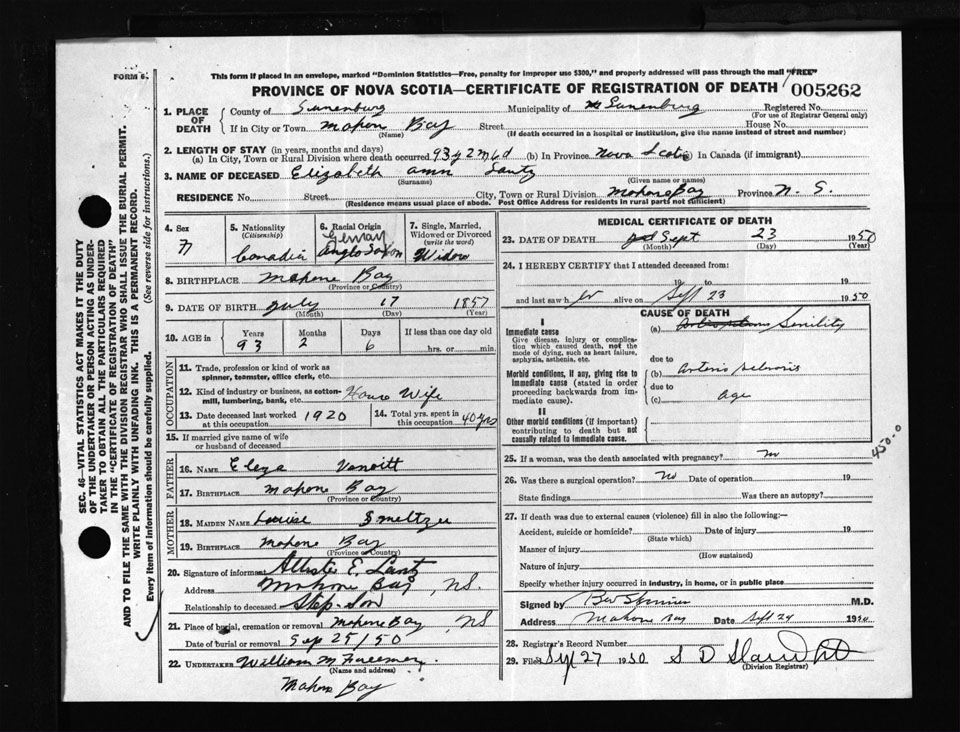 FORM 6.
This form if placed in an envelope, marked "Dominion Statistics—Free, penalty for improper use $300," and properly addressed will pass through the mail "FREE"
PROVINCE OF NOVA SCOTIA—CERTIFICATE OF REGISTRATION OF DEATH
005262
1. PLACE OF DEATH
County of Lunenburg Municipality of Lunenburg Registered No.
(For use of Registrar General only)
If in City or Town Mahone Bay Street House No.
(Name) (If death occurred in a hospital or institution, give the name instead of street and number)
2. LENGTH OF STAY (in years, months and days)
(a) In City, Town or Rural Division where death occurred 93 y 2 m 6 d (b) In Province Nova Scotia In Canada (if immigrant)
3. NAME OF DECEASED Elizabeth Ann Lantz
(Surname) (Given name or names)
RESIDENCE No. Street City, Town or Rural Division Mahone Bay Province N. S.
(Residence means usual place of abode. Post Office Address for residents in rural parts not sufficient)
4. Sex
5. Nationality (Citizenship) Canadia
6. Racial Origin German Anglo Saxon
7. Single, Married, Widowed or Divorced (write the word) Widow
8. BIRTHPLACE Mahone Bay
(Province or Country)
9. DATE OF BIRTH July 17 1857
(Month) (Day) (Year)
10. AGE in Years Months Days If less than one day old
93 2 6 hrs. or min.
OCCUPATION
11. Trade, profession or kind of work as spinner, teamster, office clerk, etc.
12. Kind of industry or business, as cotton-mill, lumbering, bank, etc. House Wife
13. Date deceased last worked at this occupation 1920
14. Total yrs. spent in this occupation 40 yrs
15. If married give name of wife or husband of deceased
FATHER
16. NAME
17. BIRTHPLACE Mahone Bay
(Province or Country)
MOTHER
18. MAIDEN NAME Louise
19. BIRTHPLACE Mahone Bay
(Province or Country)
20. Signature of informant E. Lantz
Address Mahone Bay, N.S.
Relationship to deceased Step-Son
21. Place of burial, cremation or removal Mahone Bay, NS
Date of burial or removal Sep 25/50
22. UNDERTAKER William M
(Name and address)
Mahone Bay
MEDICAL CERTIFICATE OF DEATH
23. DATE OF DEATH Sept 23 1950
(Month) (Day) (Year)
24. I HEREBY CERTIFY that I attended deceased from:
19 to 19
and last saw her alive on Sept 23 1950
CAUSE OF DEATH
I
Immediate cause
Give disease, injury or complication which caused death, not the mode of dying, such as heart failure, asphyxia, asthenia, etc.
(a) Senility
due to
Morbid conditions, if any, giving rise to immediate cause (stated in order proceeding backwards from immediate cause).
(b)
due to
(c) age
II
Other morbid conditions (if important) contributing to death but not causally related to immediate cause.
450-0
25. If a woman, was the death associated with pregnancy? no
26. Was there a surgical operation? No Date of operation 19
State findings Was there an autopsy?
27. If death was due to external causes (violence) fill in also the following:—
Accident, suicide or homicide? Date of injury 19
(State which)
Manner of injury
(How sustained)
Nature of injury
Specify whether injury occurred in industry, in home, or in public place
Signed by M.D.
Address Mahone Bay Date Sept 24 1950
28. Registrar's Record Number
29. Filed Sept 27 1950 S D
(Division Registrar)
SEC. 46—VITAL STATISTICS ACT MAKES IT THE DUTY
OF THE UNDERTAKER OR PERSON ACTING AS UNDER-
TAKER TO OBTAIN ALL THE PARTICULARS REQUIRED
IN THE "CERTIFICATE OF REGISTRATION OF DEATH"
AND TO FILE THE SAME WITH THE DIVISION REGISTRAR WHO SHALL ISSUE THE BURIAL PERMIT.
WRITE PLAINLY WITH UNFADING INK. THIS IS A PERMANENT RECORD.
Every item of information should be carefully supplied. (See reverse side for instructions.)